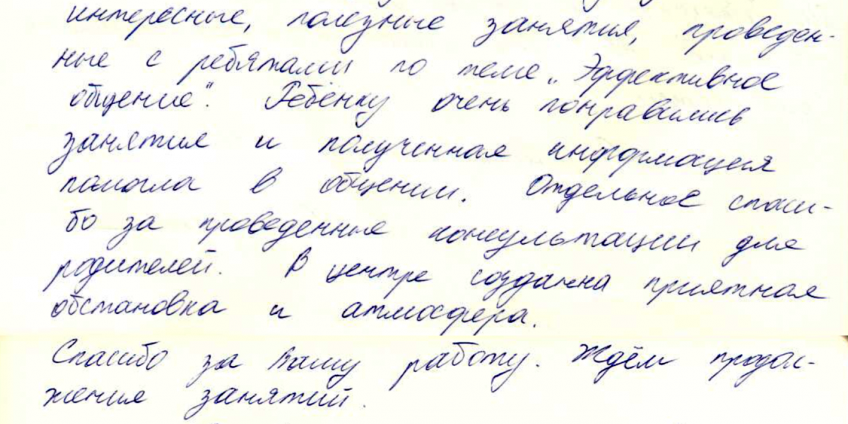 интересные, полезные занятия, проведен-
ные с ребятами по теме „Эффективное
общение". Ребёнку очень понравились
занятия и полученная информация
помогла в общении. Отдельное спаси-
бо за проведенные консультации для
родителей. В центре создана приятная
обстановка и атмосфера.
Спасибо за Вашу работу. Ждём продол-
жения занятий.